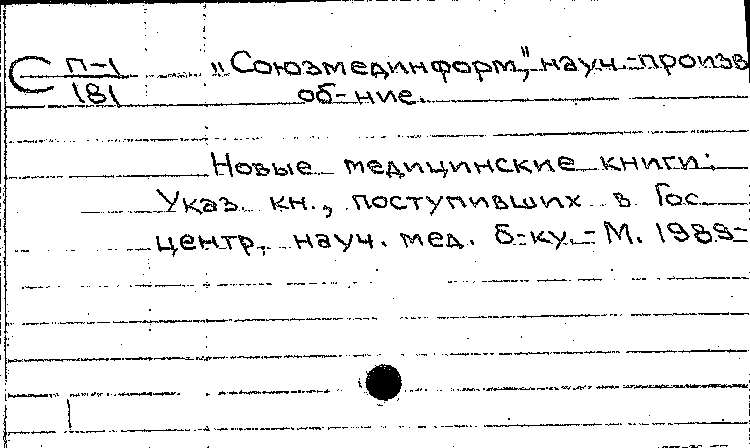 С П-1
181
„Союзмединформ", науч.-произв
об-ние.
Новые медицинские книги:
Указ. кн., поступивших в Гос.
центр. науч. мед. б-ку. - М. 1989-